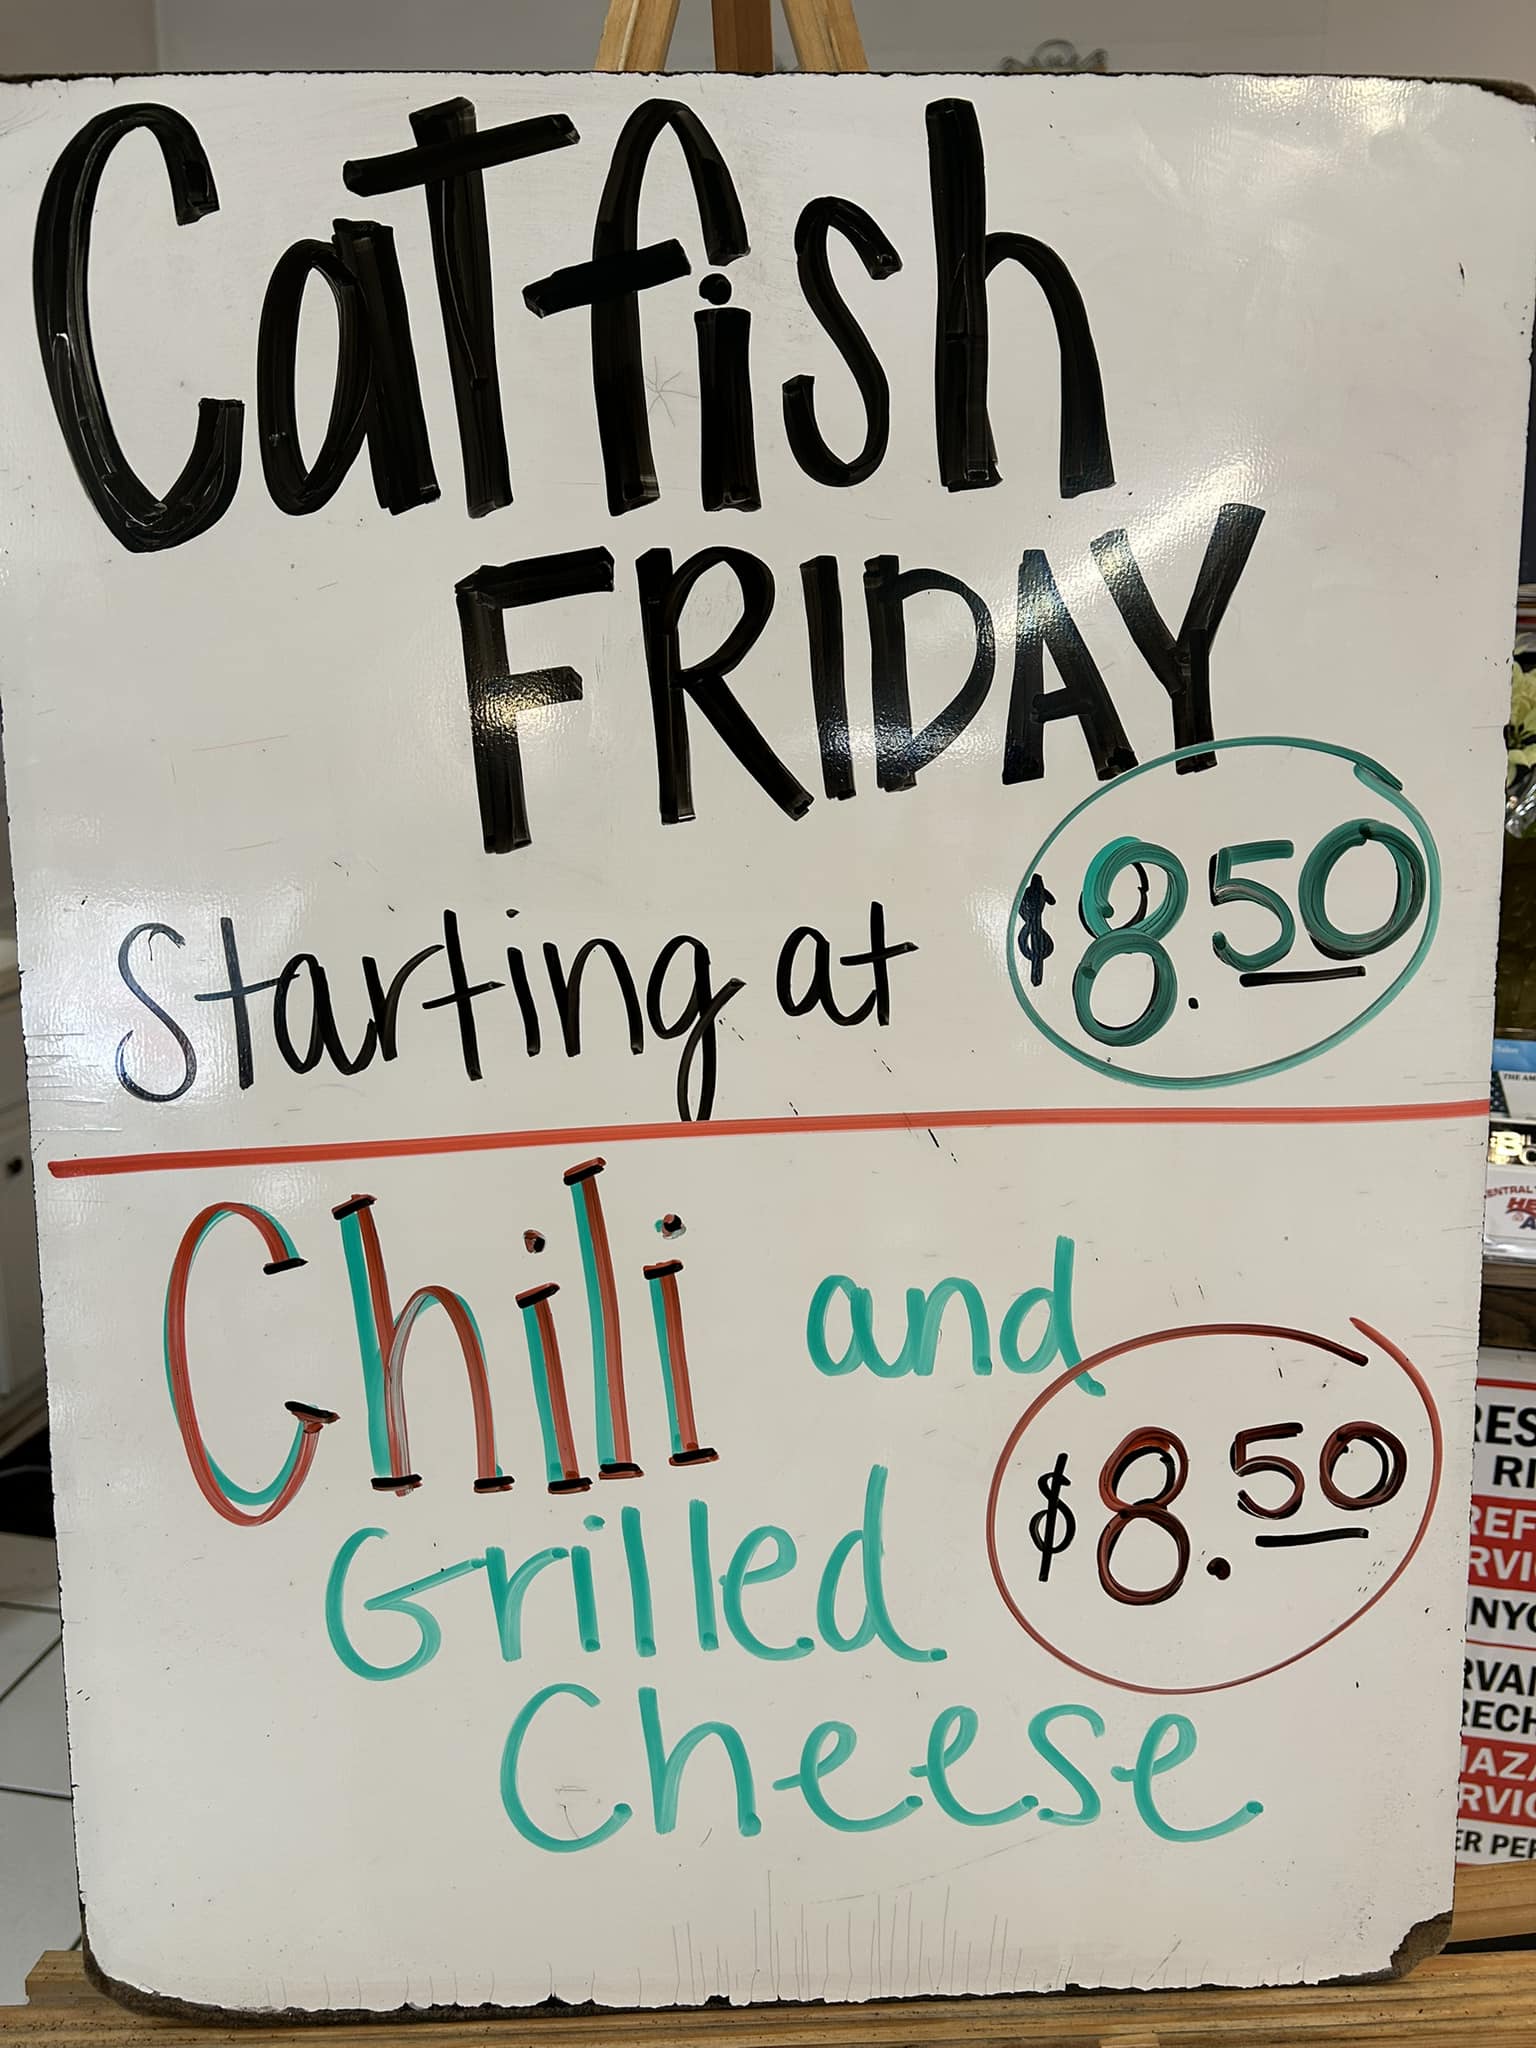 Catfish
FRIDAY
Starting at $8.50
Chili and
Grilled $8.50
Cheese
THE AM
RES
RI
REF
RVI
NYO
RVAN
RECH
HAZA
RVIC
ER PER